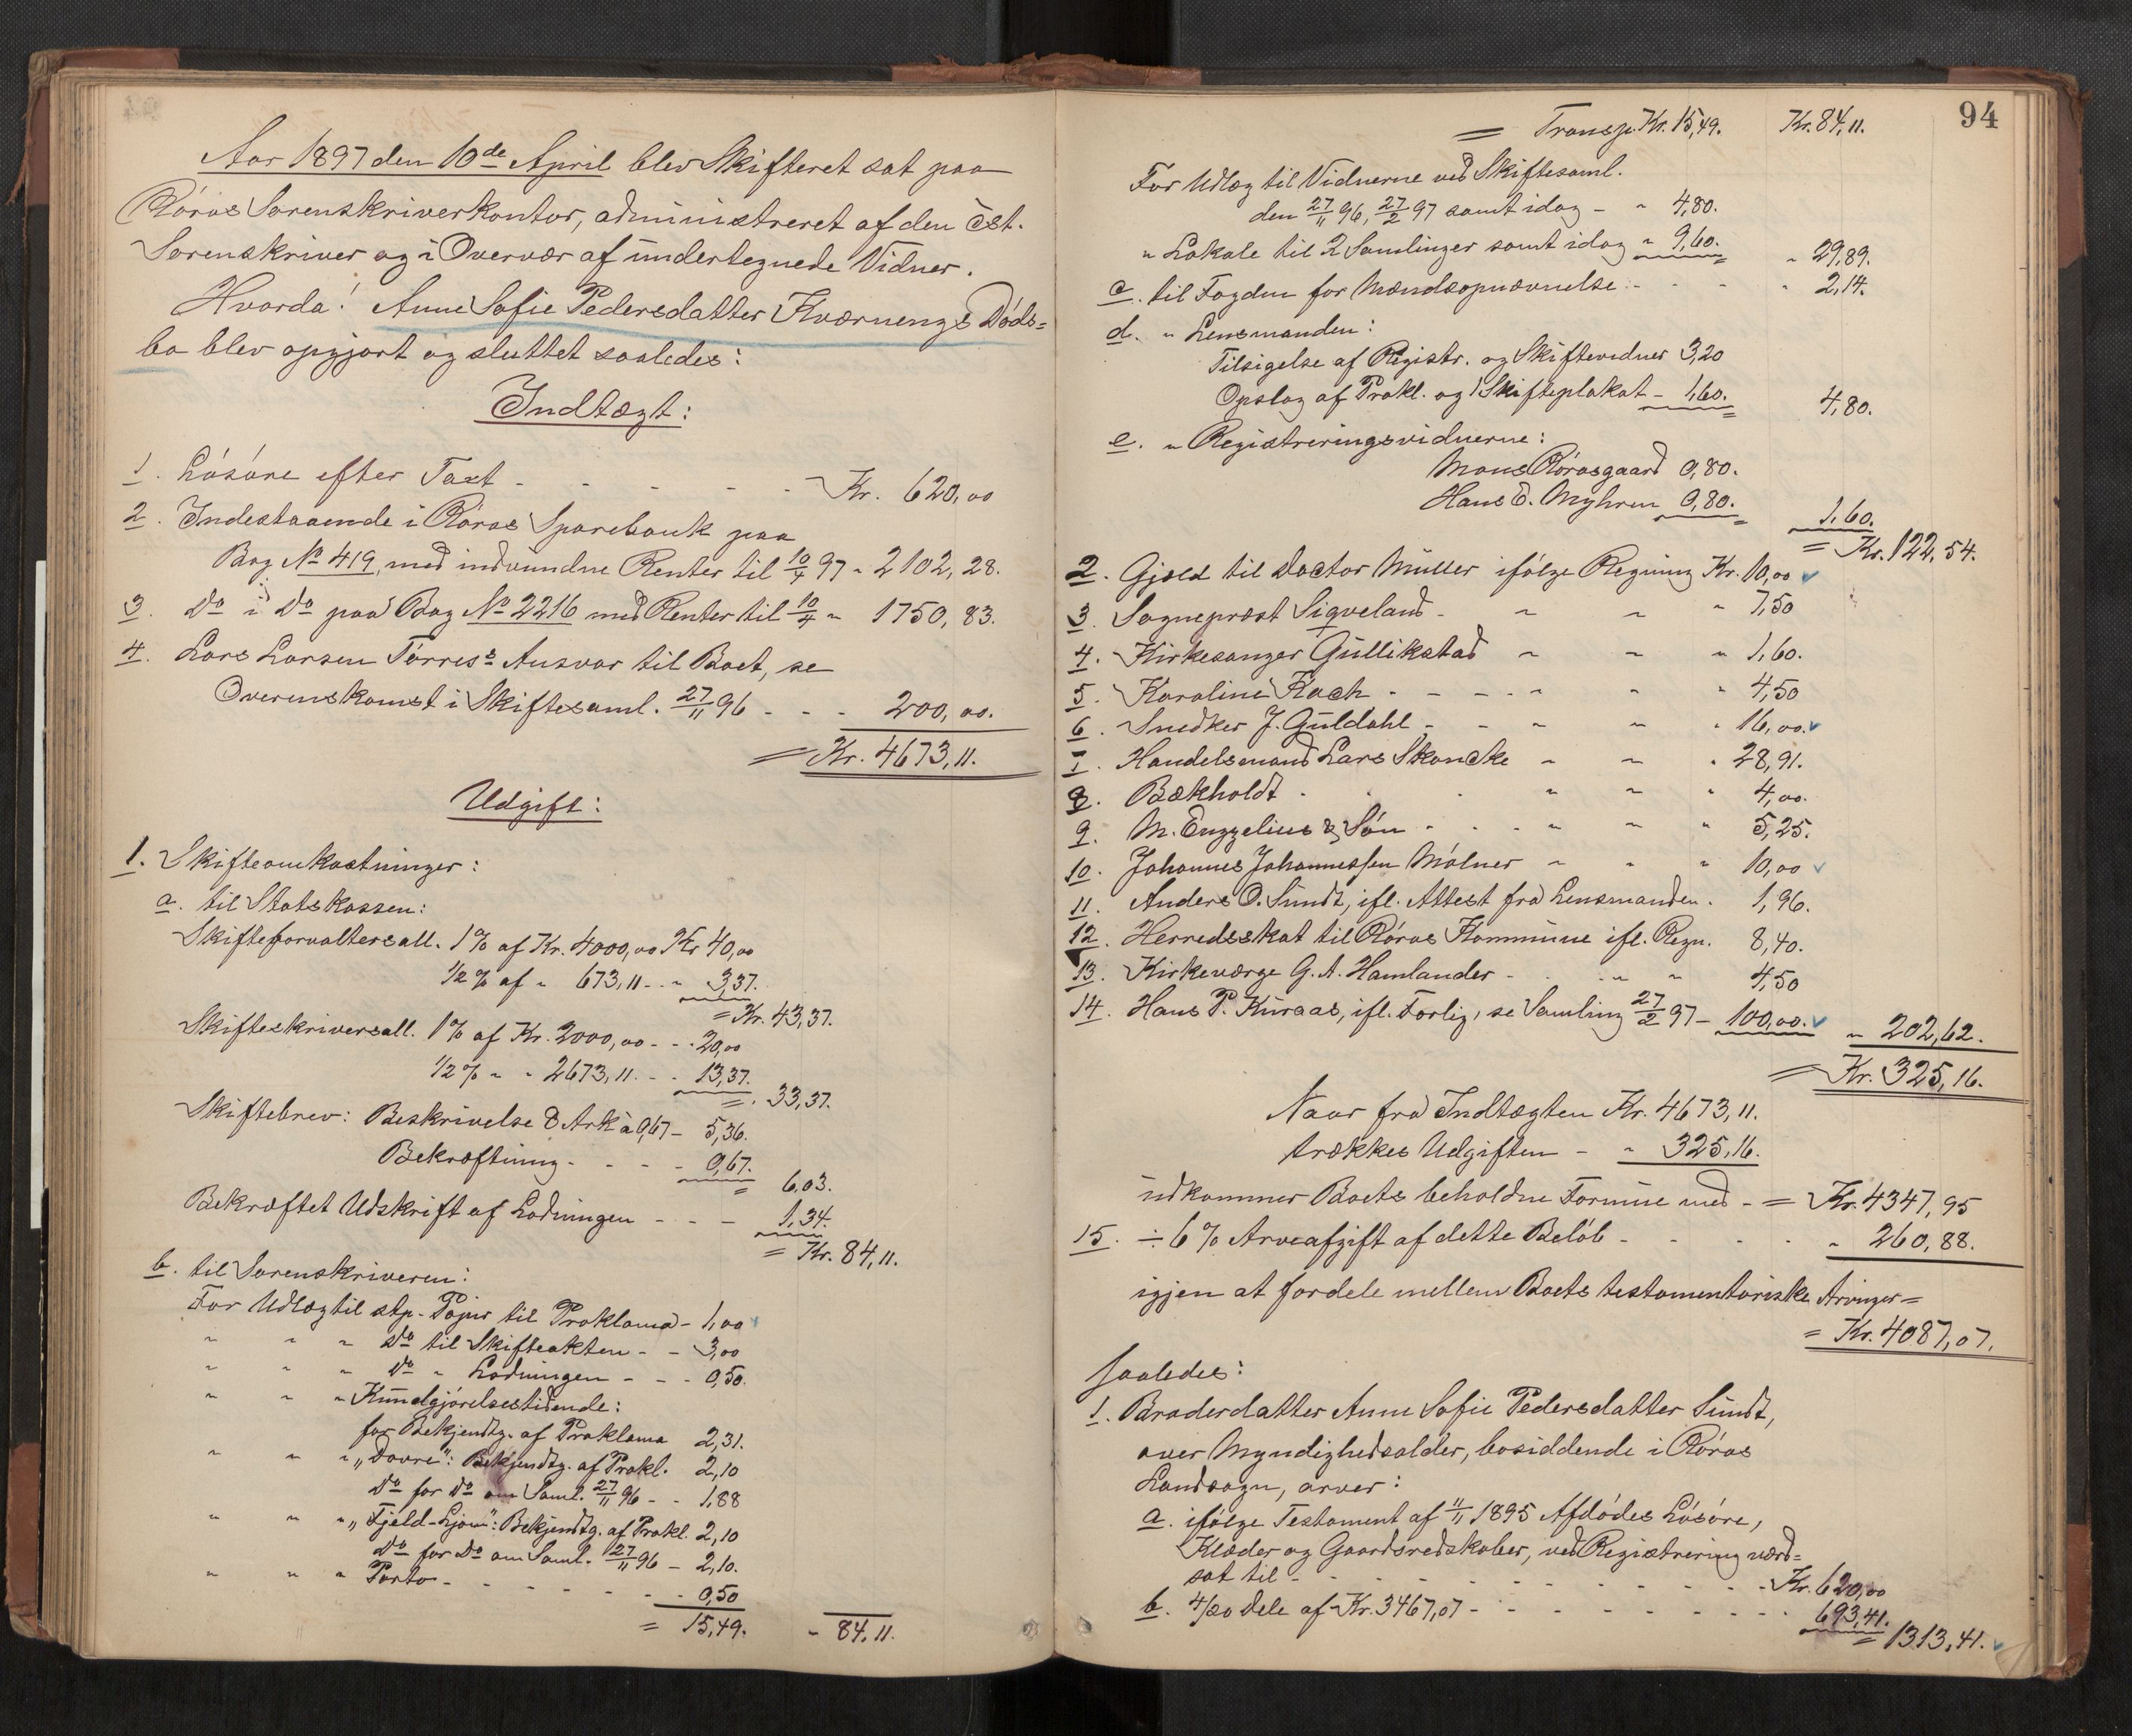 Aar 1897 den 10de April blev Skifteret sat paa
Röros Sorenskriverkontor, administreret af den cst.
Sorenskriver og i Overvær af undertegnede Vidner.
Hvorda! Anne Sofie Pedersdatter Kværnengs Döds=
bo blev opgjort og sluttet saaledes:
Indtægt:
1. Lösöre efter Taxt - - - - - Kr. 620,00
2. Indestaaende i Röros Sparebank paa
Bog No 419, med indvundne Renter til 10/4 97 " 2102,28.
3. Do i Do paa Bog No 2216 med Renter til 10/4 " 1750,83.
4. Lars Larsen Törress Ansvar til Boet, se
Overenskomst i Skiftesaml. 27/11 96 - - - 200,00.
= Kr. 4673,11.
Udgift:
1. Skifteomkostninger:
a. til Statskassen:
Skifteforvaltersall. 1% af Kr. 4000,00 Kr 40,00
1/2 % af " 673,11 - " 3,37.
= Kr. 43,37.
Skifteskriversall. 1% af Kr. 2000,00 - - 20,00
1/2 % " " 2673,11. - - 13,37.
= . 33,37.
Skiftebrev: Beskrivelse 8 Ark à 0,67 - 5,36.
Bekræftning - - - - 0,67.
= 6,03.
Bekræftet Udskrift af Lodningen - - - 1,34.
= Kr. 84,11.
b. til Sorenskriveren:
For Udlæg til stp. Papir til Proklama - 1,00
" " " Do til Skifteakten - - 3,00
" " " Do " Lodningen - - - 0,50.
" " " Kundgjörelsestidende:
for Bekjendtg. af Proklama 2,31.
" " i "Dovre": Bekjendtg. af Prokl. 2,10
Do for Do om Saml. 27/11 96 - - 1,88
" " " "Fjeld-Ljom": Bekjendtg. af Prokl. 2,10
Do for Do om Saml. 27/11 96 - 2,10.
" " " Porto - - - - - - 0,50
= 15,49. " 84,11.
94
= Transp. Kr. 15,49. Kr. 84,11.
For Udlæg til Vidnerne ved Skiftesaml.
den 27/11 96, 27/2 97 samt idag - " 4,80.
" Lokale til 2 Samlinger samt idag " 9,60. " 29,89.
c. til Fogden for Mændsopnævnelse - - - " 2,14.
d. " Lensmanden:
Tilsigelse af Registr. og Skiftevidner 3,20
Opslag af Prokl. og 1 Skifteplakat - 1,60. 4,80.
e. " Registreringsvidnerne:
Mons Rörosgaard 0,80.
Hans E. Myhren 0,80. 1,60.
= Kr. 122,54.
2. Gjæld til Doctor Müller ifölge Regning Kr. 10,00
3. Sognepræst Siqveland - " " " 7,50
4. Kirkesanger Gullikstad " " " 1,60.
5. Karoline Koch - - - - " " " 4,50
6. Snedker J. Guldahl - - " " " 16,00.
7. Handelsmand Lars Skancke " " " 28,91.
8. Bækholdt - - - " " " 4,00.
9. M. Engzelius & Sön - - - " " " 5,25.
10. Johannes Johannessen Mölner " " " 10,00
11. Anders O. Sundt, ifl. Attest fra Lensmanden. 1,96.
12. Herredsskat til Röros Kommune ifl. Regn. 8,40.
13. Kirkeværge G. A. Hamlander - - " " 4,50
14. Hans P. Kuraas, ifl. Forlig, se Samling 27/2 97 - 100,00. " 202,62.
= Kr. 325,16.
Naar fra Indtægten Kr. 4673,11.
trækkes Udgiften - " 325,16.
udkommer Boets beholdne Formue med - = Kr. 4347,95
15. ÷ 6 % Arveafgift af dette Belöb - - - - " 260,88.
igjen at fordele mellem Boets testamentariske Arvinger =
= Kr. 4087,07.
saaledes:
1. Broderdatter Anne Sofie Pedersdatter Sundt,
over Myndighedsalder, bosiddende i Röros
Landsogn, arver:
a. ifölge Testament af 11/11 1895 Afdödes Lösöre,
Klæder og Gaardsredskaber, ved Registrering værd=
sat til - - - - - - - - - Kr. 620,00
b. 4/20 dele af Kr. 3467,07 - - - - - - - 693,41.
= 1313,41.